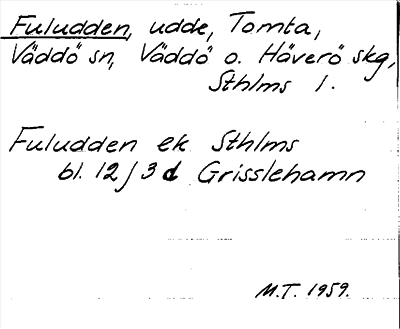 Fuludden, udde, Tomta,
Väddö sn, Väddö o. Häverö skg,
Sthlms l.
Fuludden ek Sthlms
bl. 12 j 3 d Grisslehamn
M.T. 1959.